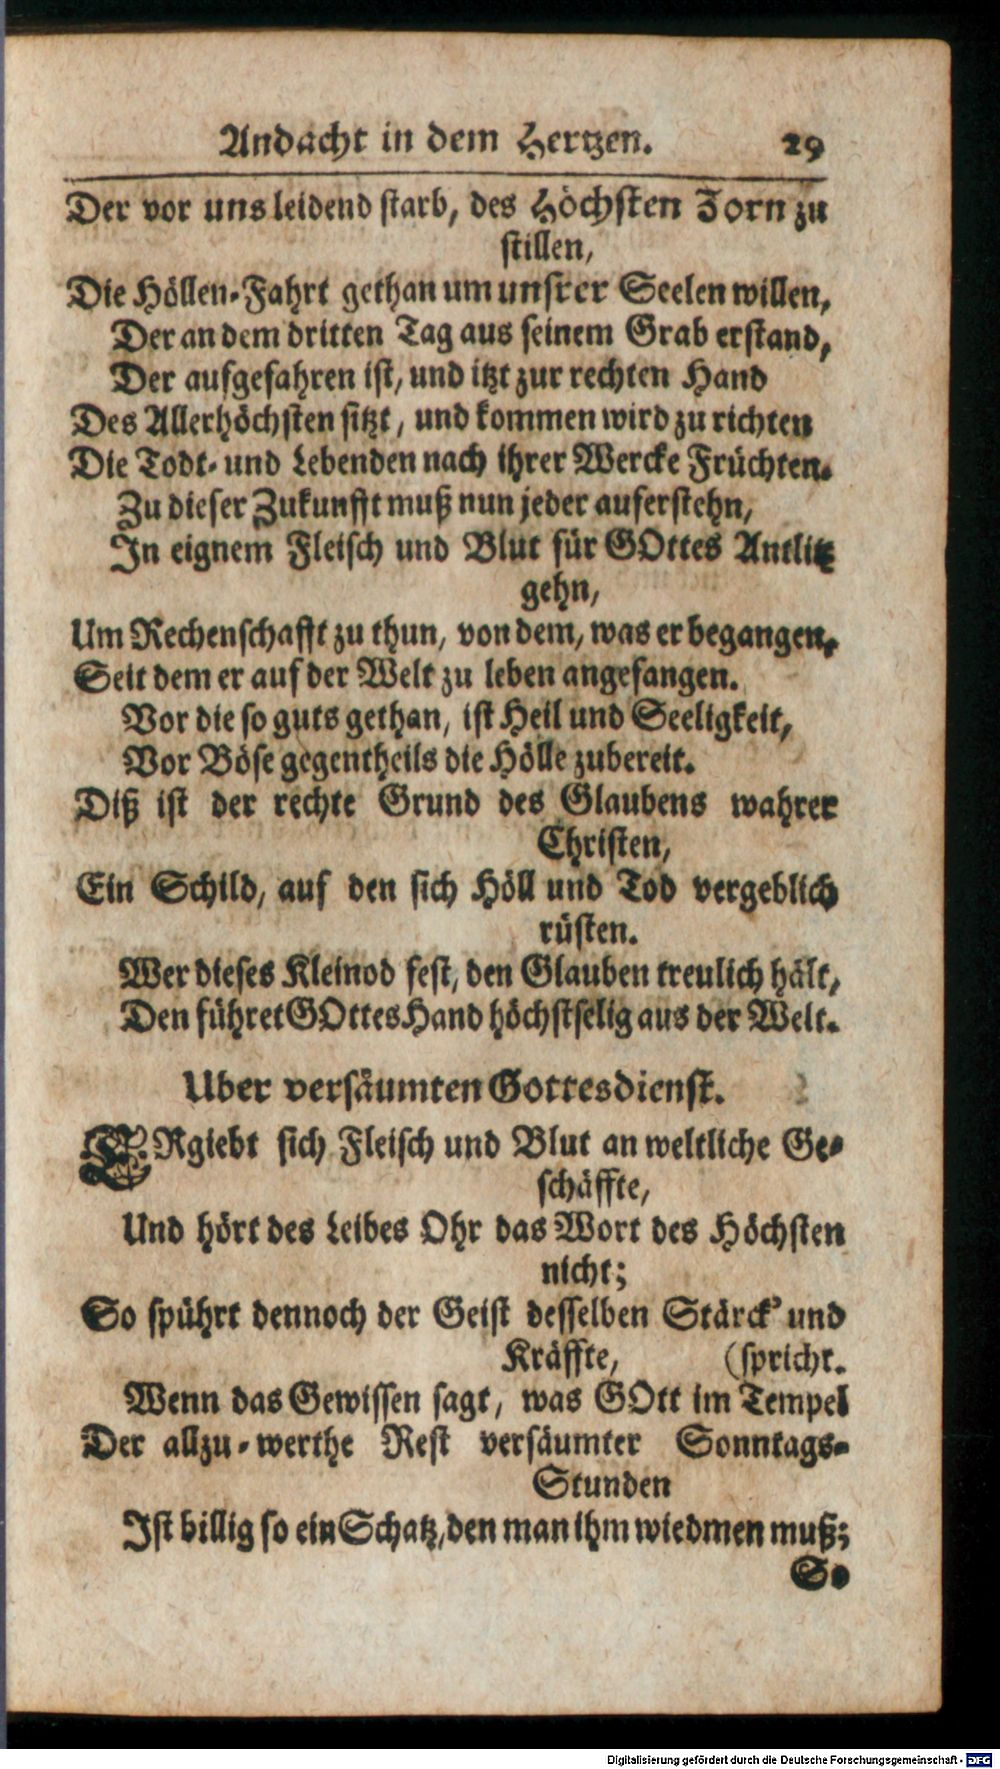 Andacht in dem Hertzen. 29
Der vor uns leidend starb, des Höchsten Zorn zu
stillen,
Die Höllen-Fahrt gethan um unsrer Seelen willen,
Der an dem dritten Tag aus seinem Grab erstand,
Der aufgefahren ist, und itzt zur rechten Hand
Des Allerhöchsten sitzt, und kommen wird zu richten
Die Todt- und Lebenden nach ihrer Wercke Früchten.
Zu dieser Zukunfft muß nun jeder auferstehn,
In eignem Fleisch und Blut für GOttes Antlitz
gehn,
Um Rechenschafft zu thun, von dem, was er begangen,
Seit dem er auf der Welt zu leben angefangen.
Vor die so guts gethan, ist Heil und Seeligkeit,
Vor Böse gegentheils die Hölle zubereit.
Diß ist der rechte Grund des Glaubens wahrer
Christen,
Ein Schild, auf den sich Höll und Tod vergeblich
rüsten.
Wer dieses Kleinod fest, den Glauben treulich hält,
Den führet GOttes Hand höchstselig aus der Welt.
Uber versäumten Gottesdienst.
ERgiebt sich Fleisch und Blut an weltliche Ge-
schäffte,
Und hört des Leibes Ohr das Wort des Höchsten
nicht;
So spührt dennoch der Geist desselben Stärck' und
Kräffte, (spricht.
Wenn das Gewissen sagt, was GOtt im Tempel
Der allzu-werthe Rest versäumter Sonntags-
Stunden
Ist billig so ein Schatz, den man ihm wiedmen muß;
So
Digitalisierung gefördert durch die Deutsche Forschungsgemeinschaft - DFG